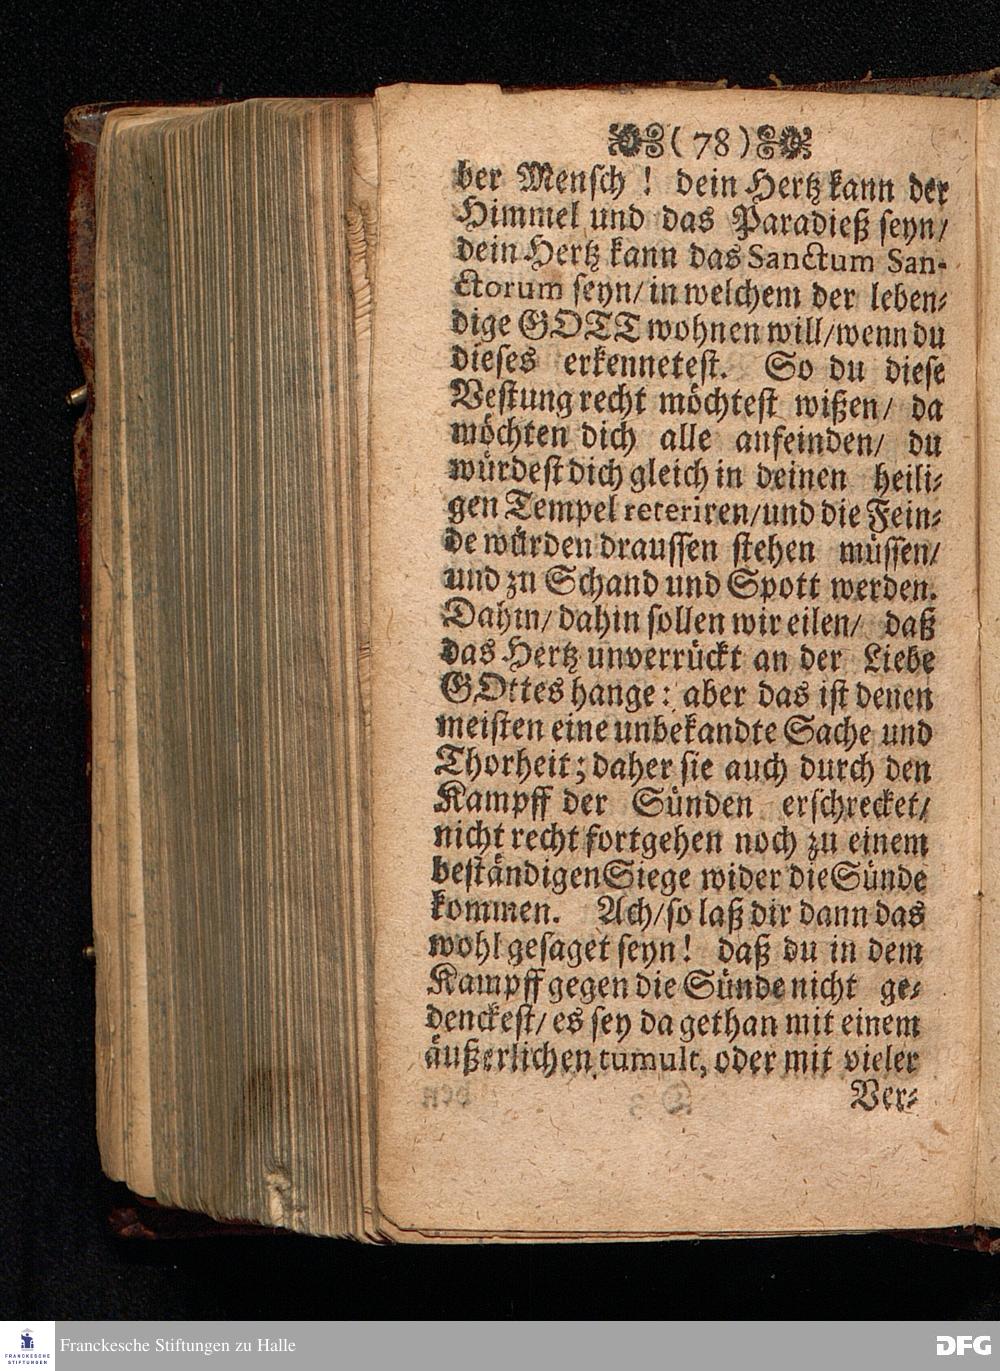 (78)
ber Mensch! dein Hertz kann der
Himmel und das Paradieß seyn/
dein Hertz kann das Sanctum San-
ctorum seyn/ in welchem der leben⸗
dige GOTT wohnen will/ wenn du
dieses erkennetest. So du diese
Vestung recht möchtest wißen/ da
möchten dich alle anfeinden/ du
würdest dich gleich in deinen heili⸗
gen Tempel reteriren/ und die Fein⸗
de würden draussen stehen müssen/
und zu Schand und Spott werden.
Dahin/ dahin sollen wir eilen/ daß
das Hertz unverrückt an der Liebe
GOttes hange: aber das ist denen
meisten eine unbekandte Sache und
Thorheit; daher sie auch durch den
Kampff der Sünden erschrecket/
nicht recht fortgehen noch zu einem
beständigen Siege wider die Sünde
kommen. Ach/ so laß dir dann das
wohl gesaget seyn! daß du in dem
Kampff gegen die Sünde nicht ge⸗
denckest/ es sey da gethan mit einem
äußerlichen tumult, oder mit vieler
Ver⸗
FRANCKESCHE STIFTUNGEN
Franckesche Stiftungen zu Halle
DFG